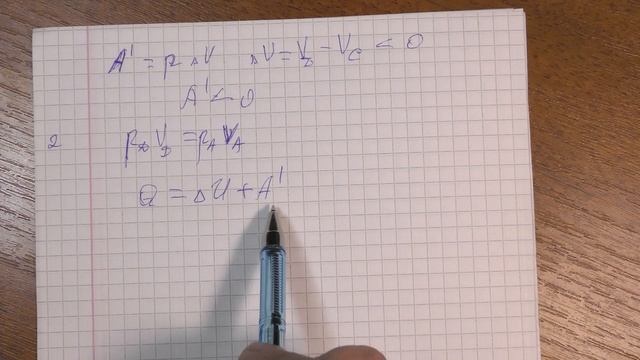 A' = p ΔV ΔV = V_D − V_C < 0
A' < 0
2 p_D V_D = p_A V_A
Q = ΔU + A'